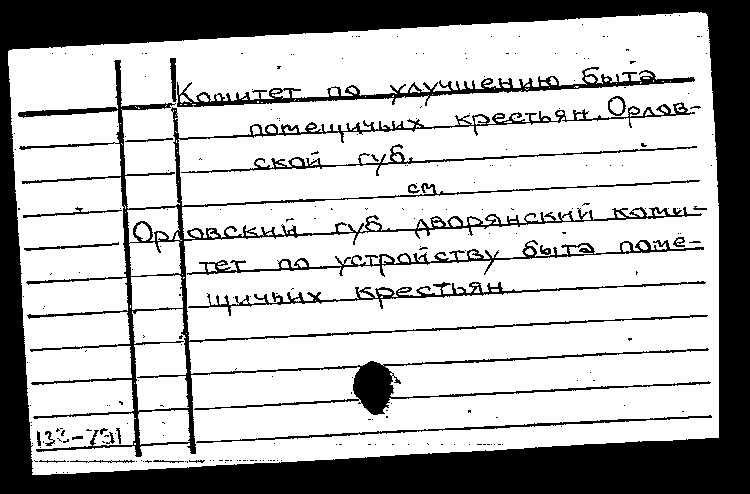 Комитет по улучшению быта
помещичьих крестьян. Орлов-
ской губ.
см.
Орловский губ. дворянский коми-
тет по устройству быта поме-
щичьих крестьян.